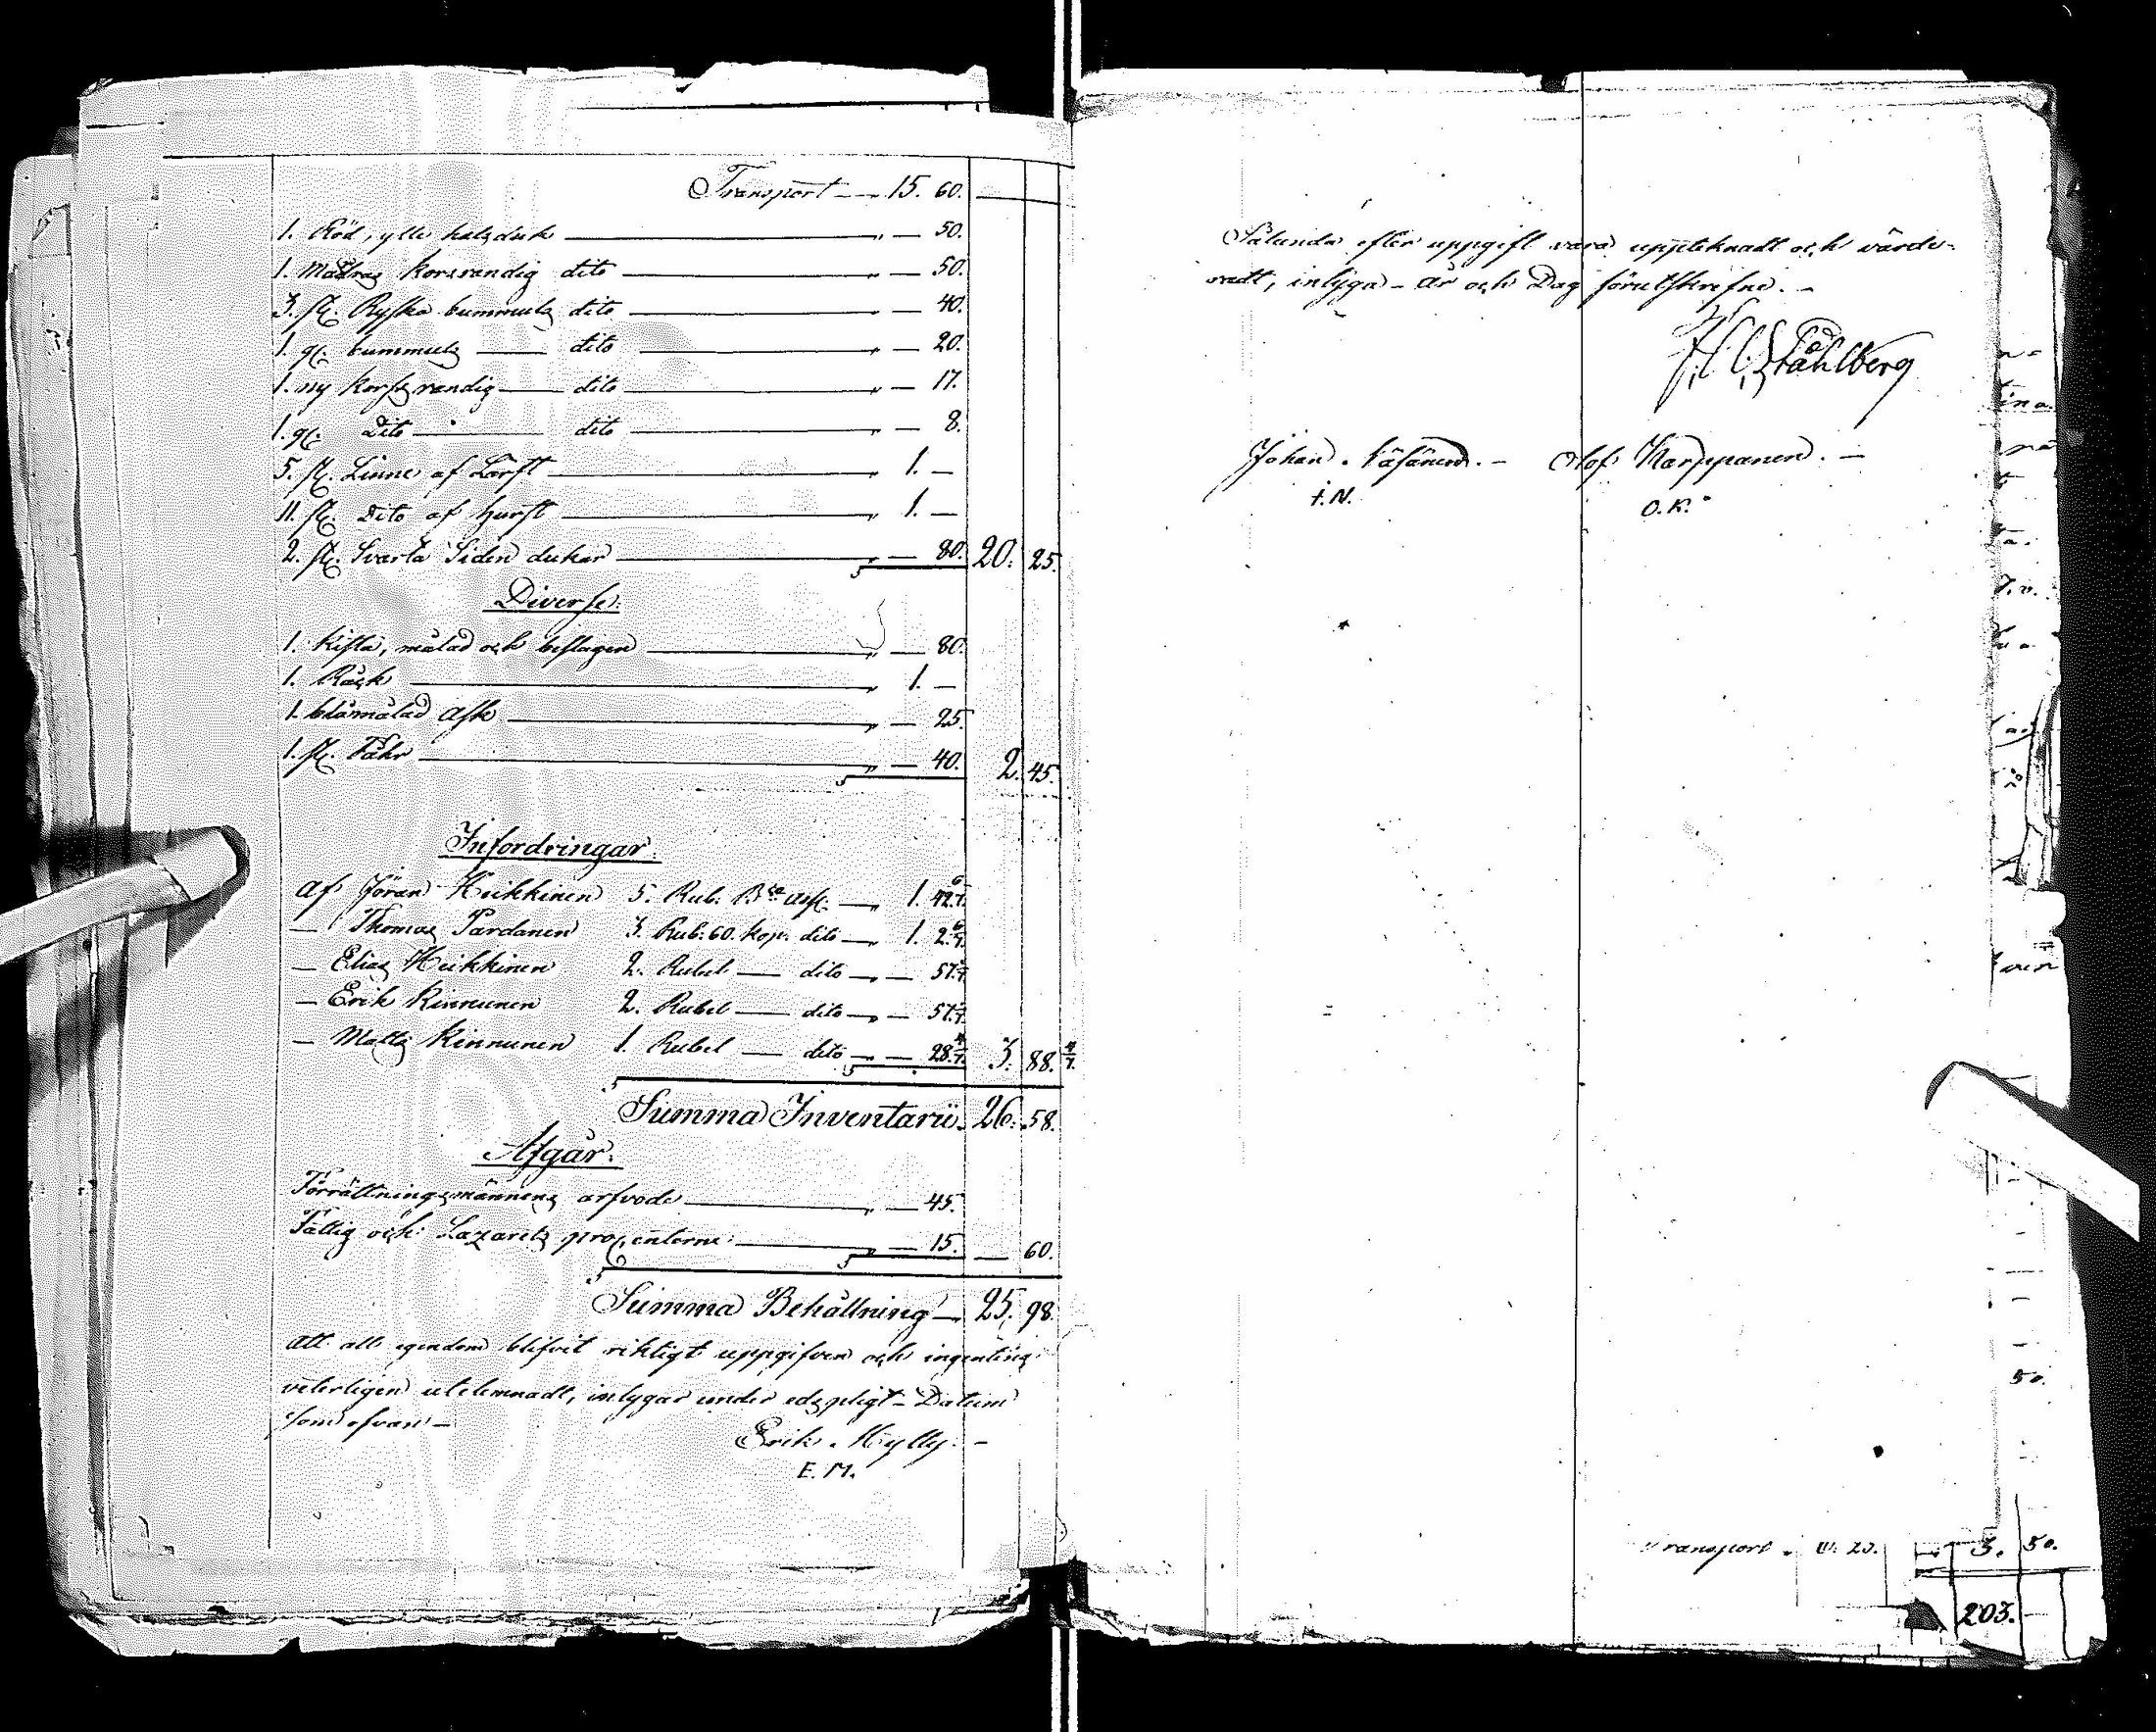 Transport — 15. 60.
1. Röd, ylle halsduk — „ — 50.
1. Madras korsrandig dito — „ — 50.
3. st. Ryska bummuls dito — „ — 40.
1. gl. bummuls — dito — „ — 20.
1. ny korssrandig — dito — „ — 17.
1. gl. Dito — dito — „ — 8.
5. st. Linne af Lärft — „ 1. —
11. st. Dito af hurst — „ 1. —
2. st. Svarta Siden dukar — „ — 80. 20. 25.
Diverse.
1. Kista, målad och beslagen — „ — 80.
1. Räck — „ 1. —
1. blåmålad Ask — „ — 25.
1. st. Fåhr — „ — 40. 2. 45.
Infordringar.
Af Jöran Heikkinen 5. Rub. Bco Ass. — „ 1. 42 6/7.
— Thomas Pardanen 3. Rub. 60. kop. dito — „ 1. 2 6/7.
— Elias Heikkinen 2. Rubel — dito — „ — 57 1/7.
— Erik Kinnunen 2. Rubel — dito — „ — 57 1/7.
— Matts Kinnunen 1. Rubel — dito — „ — 28 4/7. 3. 88. 4/7.
Summa Inventarii. 26. 58.
Afgår.
Förrättningsmännens arfvode — „ — 45.
Fattig och Lazaretts procenterne — „ — 15. — 60.
Summa Behållning — 25. 98.
Att all egendom blifvit riktigt uppgifven och ingenting
veterligen utelemnadt, intygar under edspligt – Datum
som ofvan –
Erik . Mylly. –
E. M.
Sålunda efter uppgift vara uppteknadt och värde-
radt, intyga – År och Dag förutskrefne. –
Ståhlberg
Johan . Väisänen. – Olof Karppanen. –
O. K.
50.
Transport . 3. 50.
203.